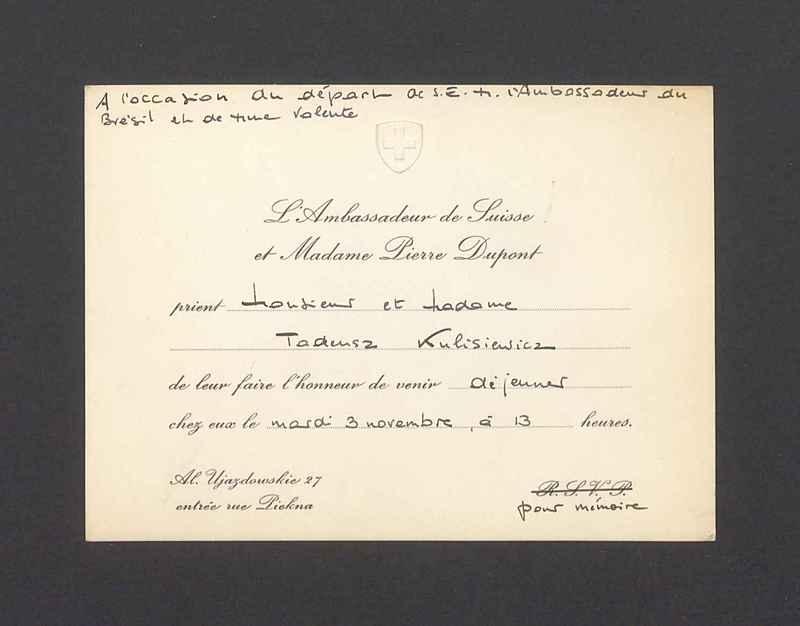 A l'occasion du départ de S.E. M. l'Ambassadeur du
Brésil et de Mme Valente
L'Ambassadeur de Suisse
et Madame Pierre Dupont
prient Monsieur et Madame
Tadeusz Kulisiewicz
de leur faire l'honneur de venir déjeuner
chez eux le mardi 3 novembre, à 13 heures.
Al. Ujazdowskie 27
entrée rue Piekna
R. S. V. P.
pour mémoire